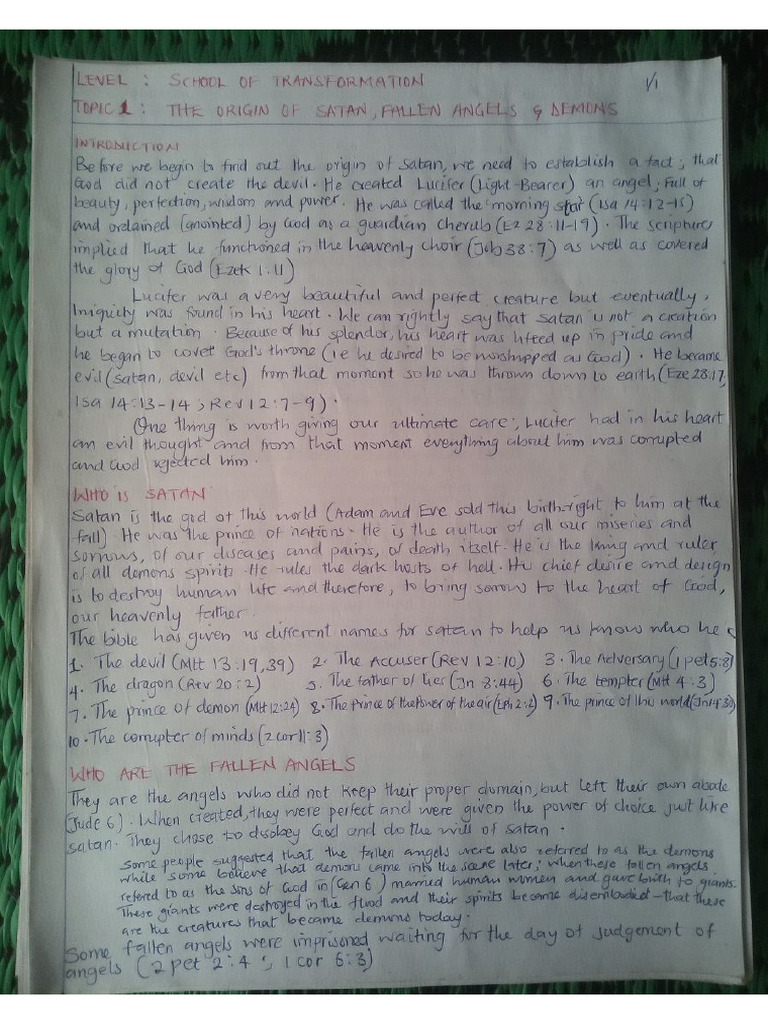 LEVEL : SCHOOL OF TRANSFORMATION
TOPIC 1 : THE ORIGIN OF SATAN, FALLEN ANGELS & DEMONS
INTRODUCTION
Before we begin to find out the origin of Satan, we need to establish a fact; that
God did not create the devil. He created Lucifer (Light-Bearer) an angel, Full of
beauty, perfection, wisdom and power. He was called the 'morning star (Isa 14:12-15)
and ordained (anointed) by God as a guardian cherub (Ez 28:11-19). The scriptures
implied that he functioned in the heavenly choir (Job 38:7) as well as covered
the glory of God (Ezek 1:11)
Lucifer was a very beautiful and perfect creature but eventually,
Iniquity was found in his heart. We can rightly say that Satan is not a creation
but a mutation. Because of his splendor, his heart was lifted up in pride and
he began to covet God's throne (ie he desired to be worshipped as God). He became
evil (satan, devil etc) from that moment so he was thrown down to earth (Eze 28:17,
Isa 14:13-14; Rev 12:7-9).
One thing is worth giving our ultimate care; Lucifer had in his heart
an evil thought and from that moment everything about him was corrupted
and God rejected him.
WHO IS SATAN
Satan is the god of this world (Adam and Eve sold this birth-right to him at the
fall). He was the prince of nations. He is the author of all our miseries and
sorrows, of our diseases and pains, of death itself. He is the king and ruler
of all demons spirits. He rules the dark hosts of hell. His chief desire and design
is to destroy human life and therefore, to bring sorrow to the heart of God,
our heavenly father.
The bible has given us different names for satan to help us know who he
1. The devil (Mtt 13:19,39) 2. The Accuser (Rev 12:10) 3. The Adversary (1 pet 5:8)
4. The dragon (Rev 20:2) 5. The father of lies (Jn 8:44) 6. The tempter (Mtt 4:3)
7. The prince of demon (Mtt 12:24) 8. The Prince of the Power of the air (Eph 2:2) 9. The prince of this world (Jn 14:30)
10. The corrupter of minds (2 cor 11:3)
WHO ARE THE FALLEN ANGELS
They are the angels who did not keep their proper domain, but left their own abode
(Jude 6). When created, they were perfect and were given the power of choice just like
satan. They chose to disobey God and do the will of satan.
Some people suggested that the fallen angels were also referred to as the demons
while some believe that demons came into the scene later; when these fallen angels
refered to as the sons of God in (Gen 6) married human women and gave birth to giants.
These giants were destroyed in the flood and their spirits became disembodied - that these
are the creatures that became demons today.
Some fallen angels were imprisoned waiting for the day of judgement of
angels (2 pet 2:4; 1 cor 6:3)